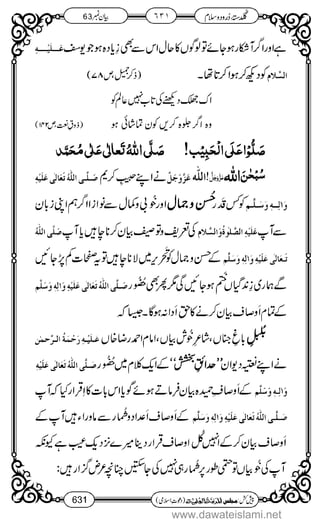 بیان نمبر 63
٦٣١
گلدستۂ درود و سلام
ہے اور اگر آشکار ہو جائے تو لوگوں کا حال اس سے بھی زیادہ ہو جو یوسف عَلَیْہِ
السَّلَام کو دیکھ کر ہوا کرتا تھا۔ (ذکرِ جمیل، ص۷۸)
اک جھلک دیکھنے کی تاب نہیں عالم کو
وہ اگر جلوہ کریں کون تماشائی ہو (ذوقِ نعت، ص۱۴۲)
صَلُّوْا عَلَی الْحَبِیْب! صَلَّی اللہُ تَعَالٰی عَلٰی مُحَمَّد
سُبْحٰنَ اللہ! اللہ عَزَّوَجَلَّ نے اپنے حبیبِ کریم صَلَّی اللہُ تَعَالٰی عَلَیْہِ
وَاٰلِہٖ وَسَلَّم کو کس قدر حُسن و جمال اور خوبی و کمال سے نوازا اگر ہم اپنی زبان
سے آپ عَلَیْہِ الصَّلٰوۃُ وَالسَّلَام کی تعریف و توصیف بیان کرنا چاہیں یا آپ صَلَّی اللہُ
تَعَالٰی عَلَیْہِ وَاٰلِہٖ وَسَلَّم کے حسن و جمال کو تحریر میں لانا چاہیں تو یہ صفحات کم پڑ جائیں
گے ہماری زندگیاں ختم ہو جائیں گی مگر پھر بھی حضور صَلَّی اللہُ تَعَالٰی عَلَیْہِ وَاٰلِہٖ وَسَلَّم
کے تمام اَوصاف بیان کرنے کا حق ادا نہ ہوگا جیسا کہ
بُلبلِ باغِ جناں، شاعرِ خوش بیاں، امام احمد رضا خاں عَلَیْہِ رَحْمَۃُ الرَّحْمٰن
نے اپنے نعتیہ دیوان ”حدائقِ بخشش“ کے کلام میں حضور صَلَّی اللہُ تَعَالٰی عَلَیْہِ
وَاٰلِہٖ وَسَلَّم کے اَوصافِ حمیدہ بیان فرماتے ہوئے گویا اس بات کا اقرار کیا کہ آپ
صَلَّی اللہُ تَعَالٰی عَلَیْہِ وَاٰلِہٖ وَسَلَّم کے اَوصاف کے اعداد و شمار سے ماوراء ہیں آپ کے
اَوصاف بیان کر کے انہیں کل اوصاف قرار دینا میرے نزدیک عیب ہے کیونکہ
آپ کی خوبیاں تو حتمی طور پر شمار ہی نہیں کی جا سکتیں چنانچہ عرض گزار ہیں:
631
پیش کش: مجلس المدینۃ العلمیۃ (دعوتِ اسلامی)
www.dawateislami.net